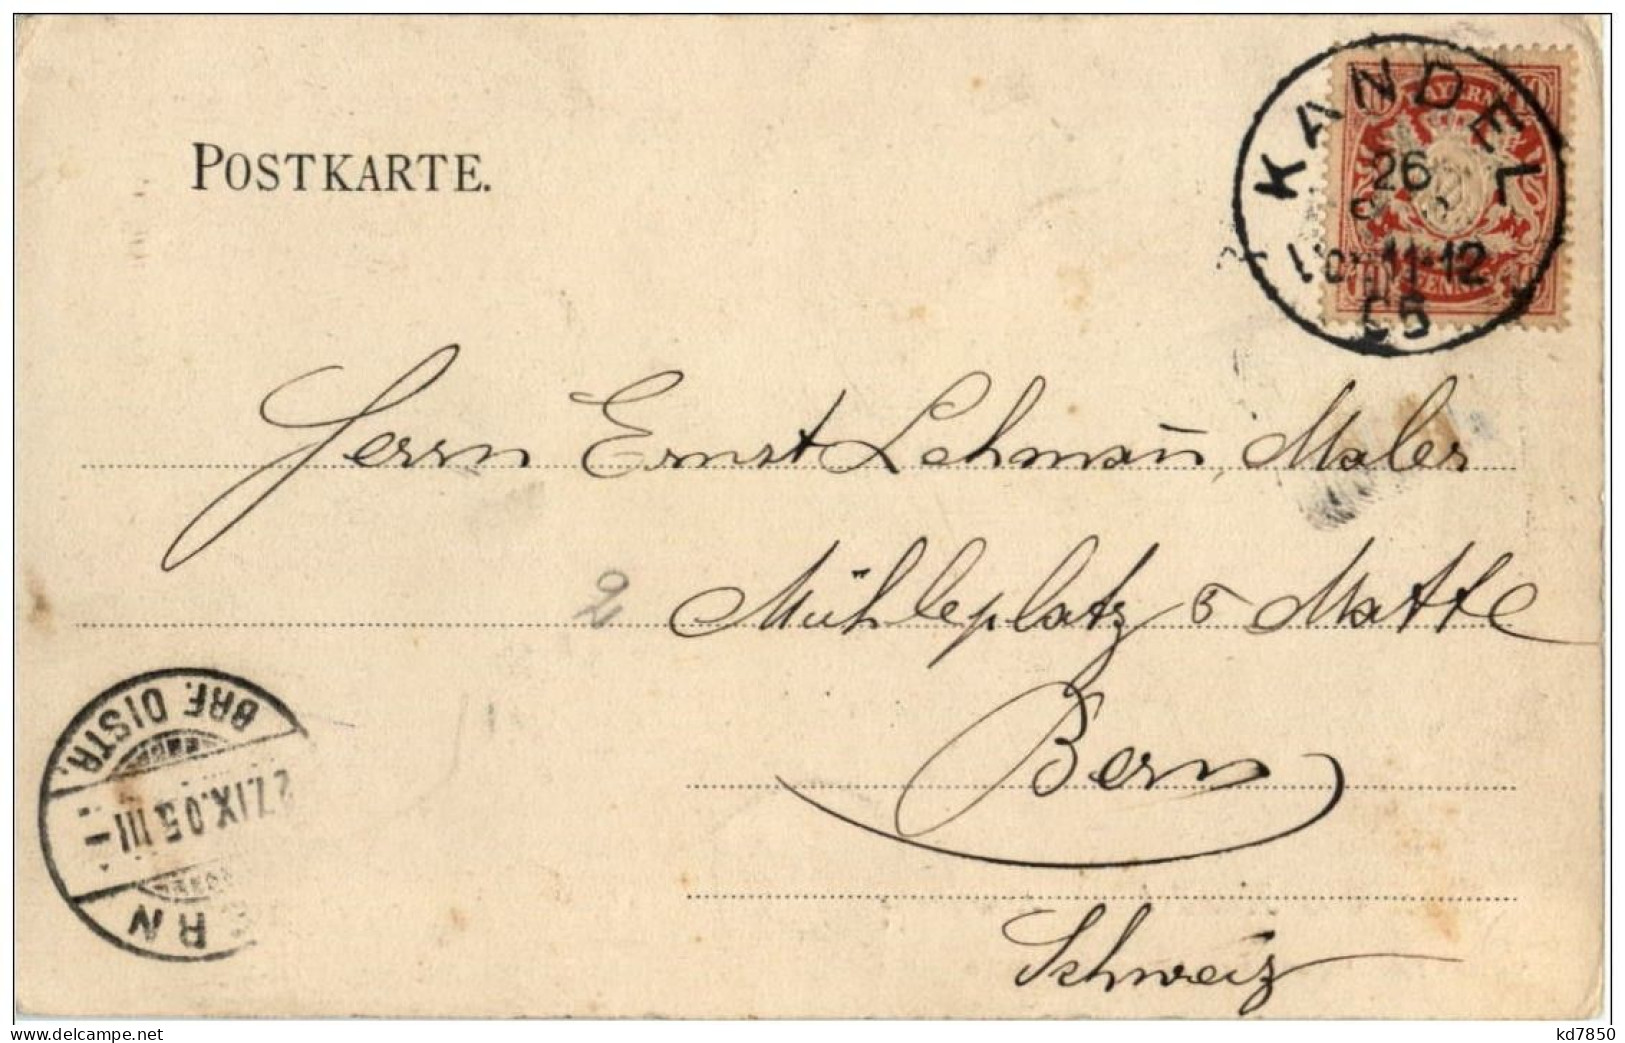 POSTKARTE.
KANDEL
26
11-12
05
BAYERN
10 10
Herrn Ernst Lehman̄, Maler
2 Mühleplatz 5 Matte
Bern
Schweiz
BRF. DISTR.
27.IX.05.III
ERN
www.delcampe.net
kd7850